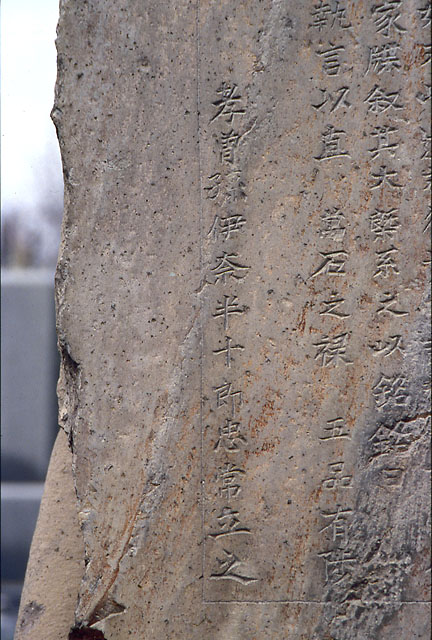 家牒叙其大槩系之以銘銘曰
執言以直　萬石之祿　五品有
孝曽孫伊奈半十郎忠常立之